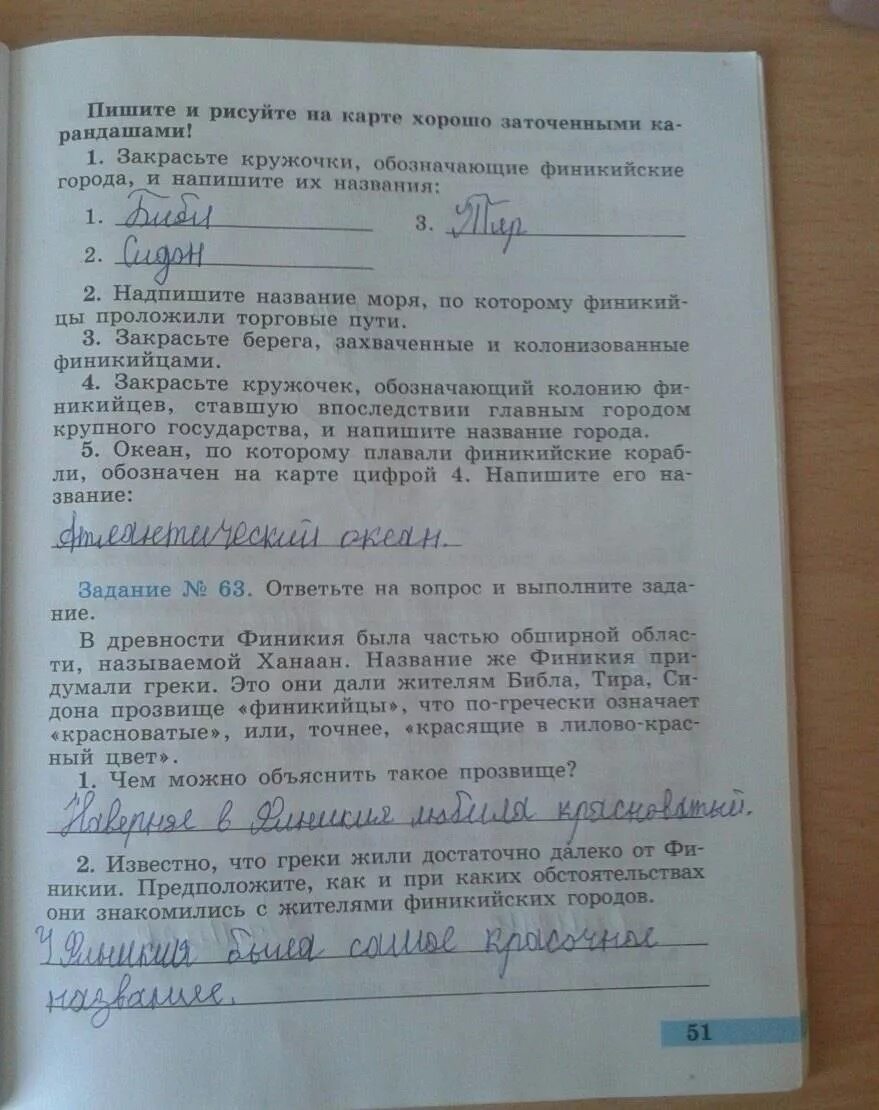 Пишите и рисуйте на карте хорошо заточенными ка-
рандашами!
1. Закрасьте кружочки, обозначающие финикийские
города, и напишите их названия:
1. Библ 3. Тир
2. Сидон
2. Надпишите название моря, по которому финикий-
цы проложили торговые пути.
3. Закрасьте берега, захваченные и колонизованные
финикийцами.
4. Закрасьте кружочек, обозначающий колонию фи-
никийцев, ставшую впоследствии главным городом
крупного государства, и напишите название города.
5. Океан, по которому плавали финикийские кораб-
ли, обозначен на карте цифрой 4. Напишите его на-
звание:
Атлантический океан.
Задание № 63. Ответьте на вопрос и выполните зада-
ние.
В древности Финикия была частью обширной облас-
ти, называемой Ханаан. Название же Финикия при-
думали греки. Это они дали жителям Библа, Тира, Си-
дона прозвище «финикийцы», что по-гречески означает
«красноватые», или, точнее, «красящие в лилово-крас-
ный цвет».
1. Чем можно объяснить такое прозвище?
Наверняе в Финикия любила красноватый.
2. Известно, что греки жили достаточно далеко от Фи-
никии. Предположите, как и при каких обстоятельствах
они знакомились с жителями финикийских городов.
У Финикия была самое красочное
название.
51